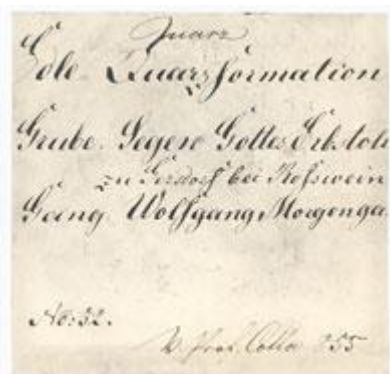 Quarz
Edle Quarzformation
Grube. Segen Gottes Erbstoln
zu Gersdorf bei Roßwein
Gang Wolfgang Morgenga
No: 32.
Prof. Cotta 355